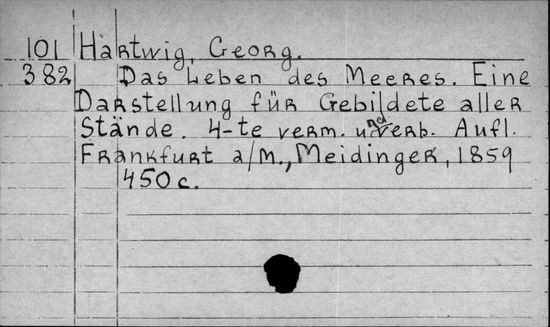 101 Hartwig, Georg.
382 Das Leben des Meeres. Eine
Darstellung für Gebildete aller
Stände. 4-te verm. und verb. Aufl.
Frankfurt a/M., Meidinger, 1859
450 c.